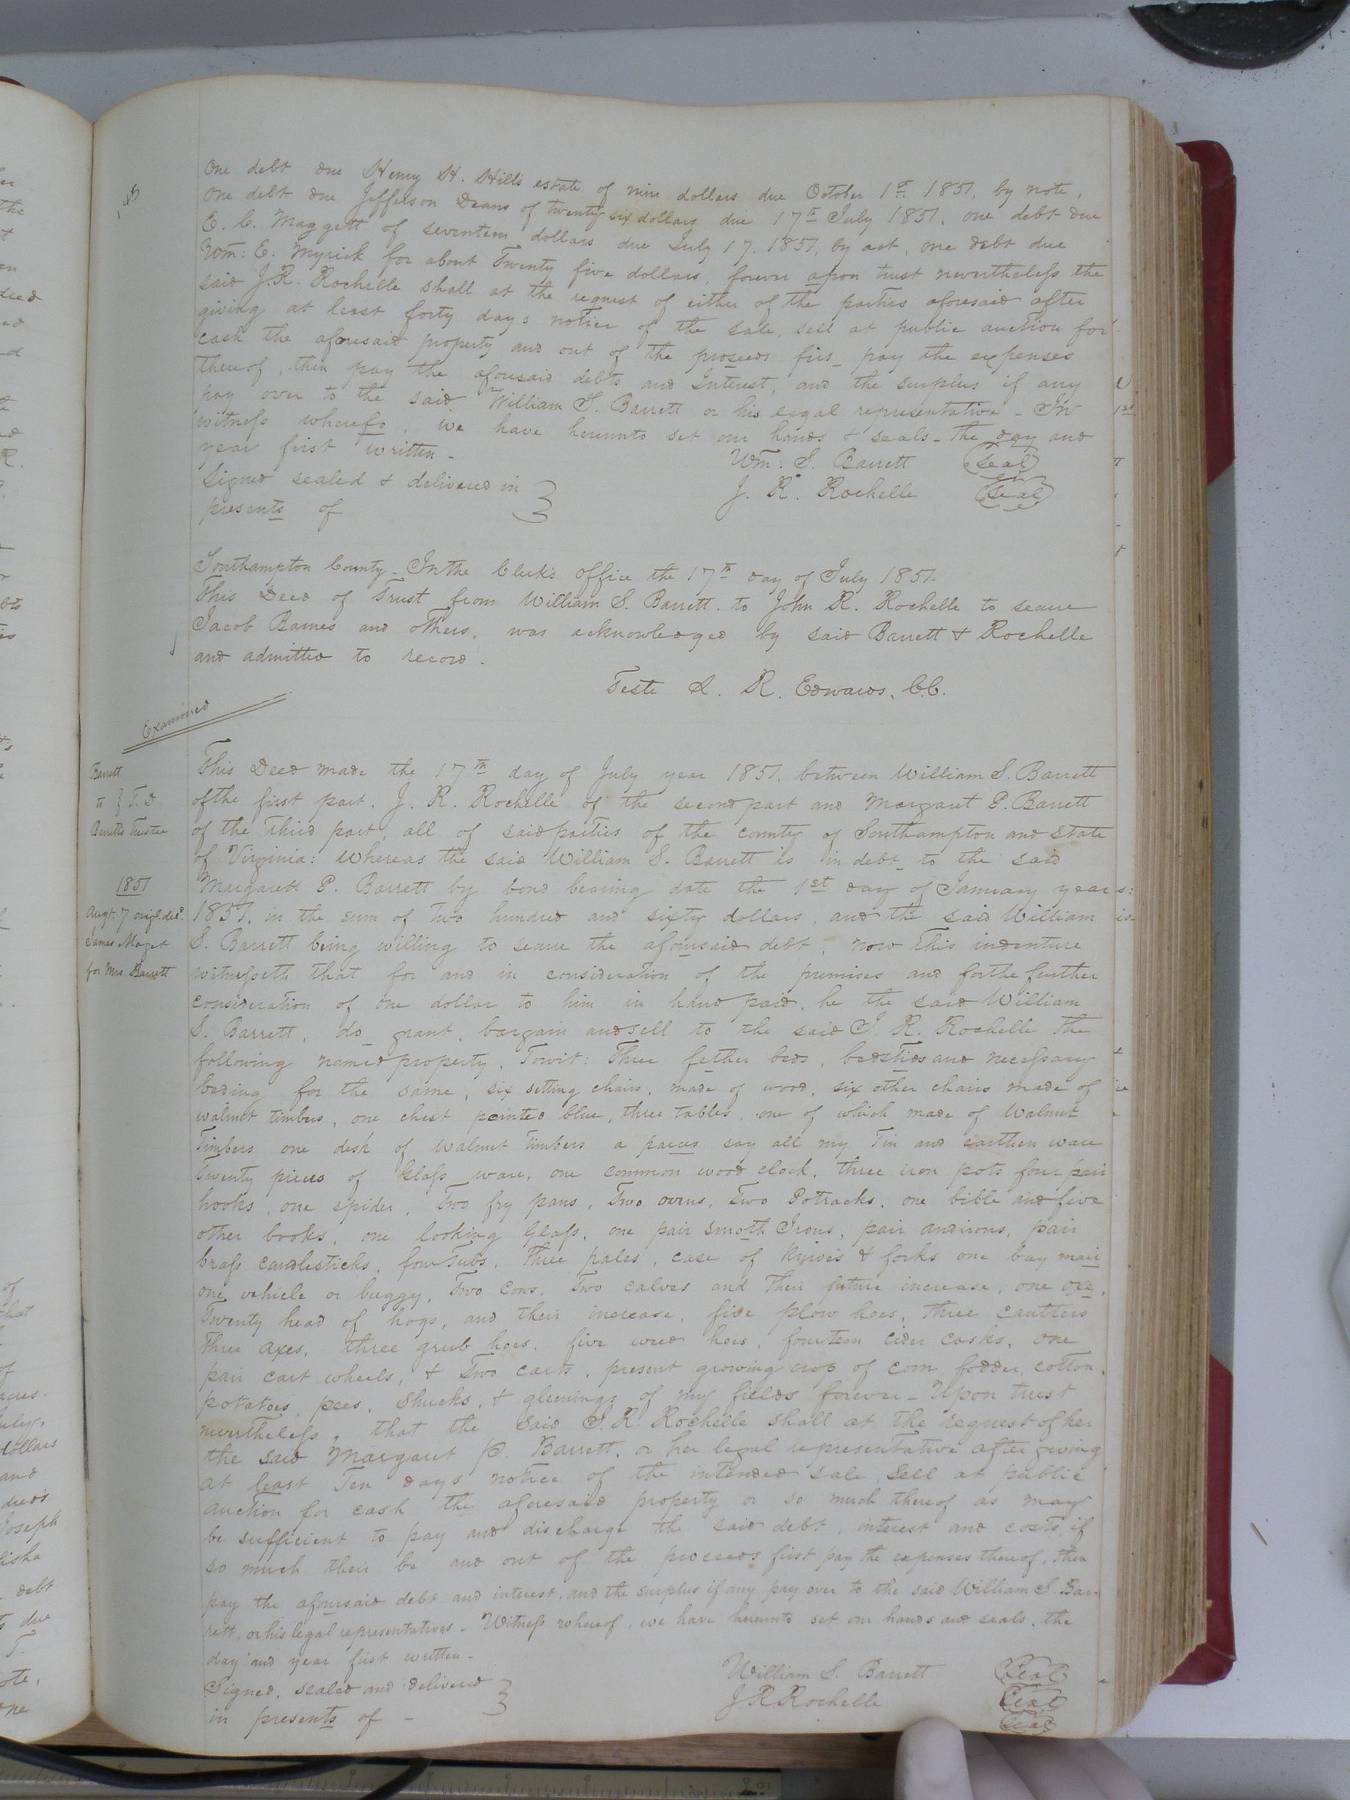 One debt due Henry H. Hills estate of nine dollars due October 1st 1851, by note,
One debt due Jefferson Deans of twenty six dollars due 17th July 1851, one debt due
C. C. Maggett of seventeen dollars due July 17. 1851, by act, one debt due
Wm: E. Myrick for about Twenty five dollars, forever upon trust nevertheless the
said J. R. Rochelle shall at the request of either of the parties aforesaid after
giving at least forty days notice of the sale, sell at public auction for
cash the aforesaid property and out of the proseeds firs_ pay the expenses
thereof, then pay the aforesaid debts and Interest, and the surplus if any
pay over to the said William S. Barrett or his legal representative - In
witness wherefo, we have hereunto set our hands & seals - the day and
year first written -
Wm. S. Barrett (Seal)
Signed sealed & delivered in
J. R. Rochelle (Seal)
presents of
Southampton County - In the Clerk's office the 17th day of July 1851.
This Deed of Trust from William S. Barrett. to John R. Rochelle to secure
Jacob Barnes and others, was acknowledged by said Barrett & Rochelle
and admitted to record.
Teste L. R. Edwards, C.C.
Examined
Barrett
to } T. D
Barretts Trustee
1851
Augt. 7 origl deld
James Maget
for Mrs. Barrett
This Deed made the 17th day of July year 1851, between William S. Barrett
of the first part, J. R. Rochelle of the second part and Margaret P. Barrett
of the third part, all of said parties of the county of Southampton and state
of Virginia: Whereas the said William S. Barrett is in debt to the said
Margarett P. Barrett by bond bearing date the 1st day of January year
1851, in the sum of two hundred and sixty dollars, and the said William
S. Barrett being willing to secure the aforesaid debt, now this indenture
witnesseth that for and in consideration of the premises and for the further
consideration of one dollar to him in hand paid, he the said William
S. Barrett, do grant, bargain and sell to the said J. R. Rochelle the
following named property, Towit: Three fether beds, bedstids and necessary
beding for the same, six setting chairs, made of wood, six other chairs made of
walnut timbers, one chest painted blue, three tables, one of which made of Walnut
Timbers one desk of walnut timbers a say all my Tin and earthen ware
Twenty pieces of Glass ware, one common wood clock, three iron pots four pair
hooks, one spider, Two fry pans, Two ovens, Two Potracks, one bible and five
other books, one looking Glass, one pair smoth Irons, pair andirons, pair
brass candlesticks, four Tubs, Three pales, case of & forks one bay
one vehicle or buggy, Two Cows, Two calves and their future increase, one oxe,
Twenty head of hogs, and their increase, five plow hoes, three caulters
Three Axes, three grub hoes, five weed hoes, fourteen cider casks, one
pair cart wheels, & Two carts, present growing crop of corn, fodder, cotton,
potatoes, pees, Shucks, & gleenings of my fields forever - Upon trust
nevertheless, that the said J. R. Rochelle shall at the request of her
the said Margaret P. Barrett, or her legal representative after giving
at least Ten days notice of the intended sale, Sell at public
auction for cash the aforesaid property or so much thereof as may
be sufficient to pay and discharge the said debt, interest and costs, if
so much their be and out of the proceeds first pay the expenses thereof, then
pay the aforesaid debt and interest, and the surplus if any pay over to the said William S. Bar-
rett, or his legal representatives - Witness whereof, we have hereunto set our hands and seals, the
day and year first written -
William S. Barrett (Seal)
Signed, sealed and delivered
J R Rochelle (Seal)
in presents of -
(Seal)